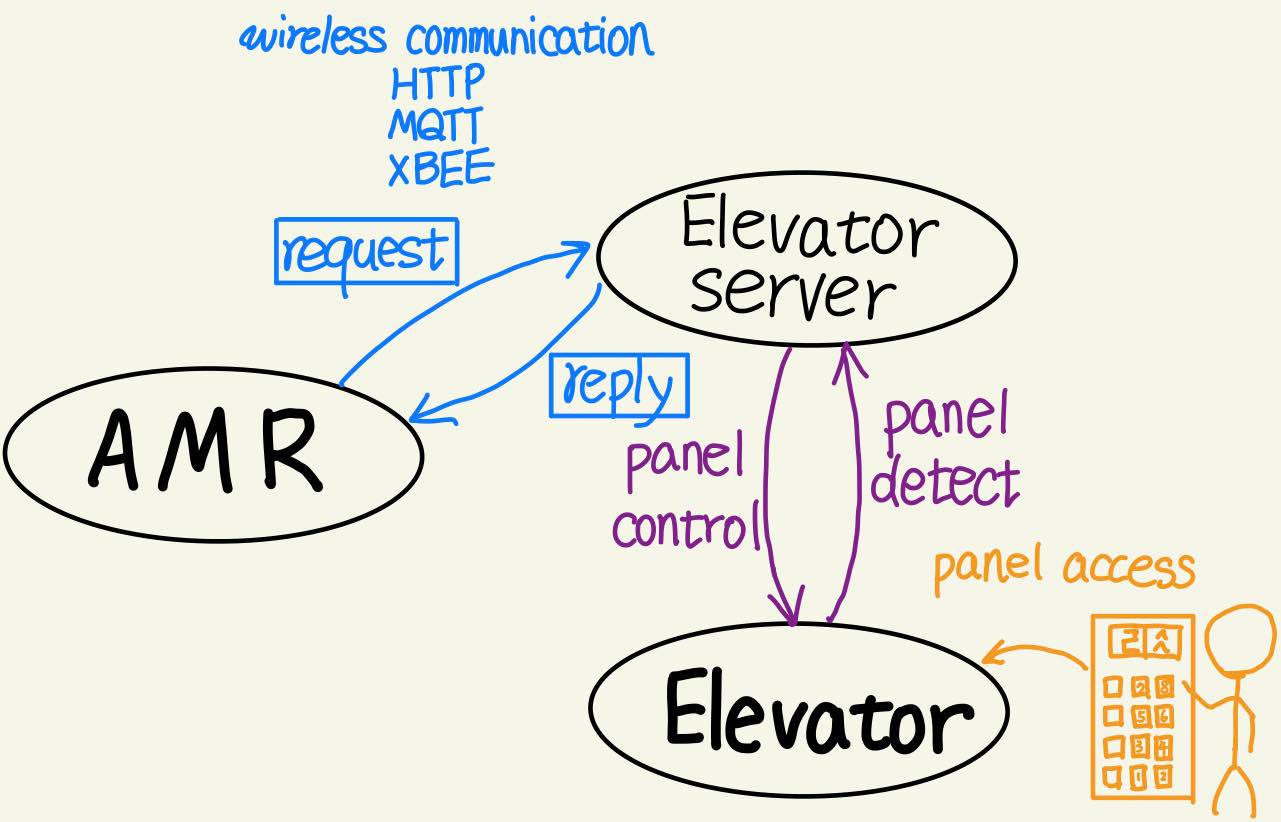 wireless communication
HTTP
MQTT
XBEE
request
Elevator
server
reply
AMR
panel
control
panel
detect
panel access
Elevator
2
7 8
5 6
3 4
1 2